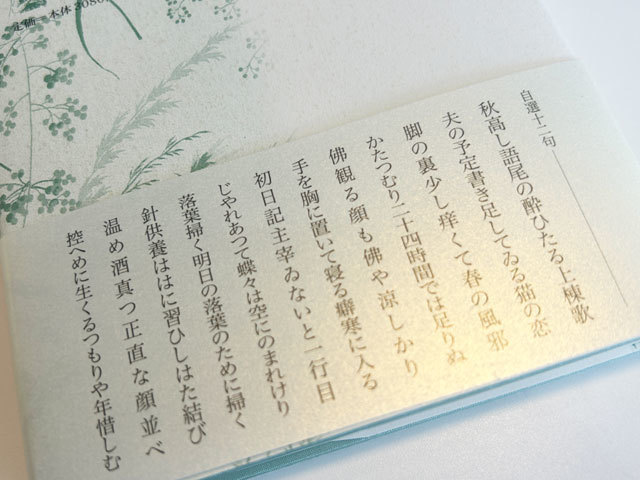 定価＝本体
自選十二句
秋高し語尾の酔ひたる上棟歌
夫の予定書き足してゐる猫の恋
脚の裏少し痒くて春の風邪
かたつむり二十四時間では足りぬ
佛観る顔も佛や涼しかり
手を胸に置いて寝る癖寒に入る
初日記主宰ゐないと一行目
じやれあつて蝶々は空にのまれけり
落葉掃く明日の落葉のために掃く
針供養ははに習ひしはた結び
温め酒真つ正直な顔並べ
控へめに生くるつもりや年惜しむ